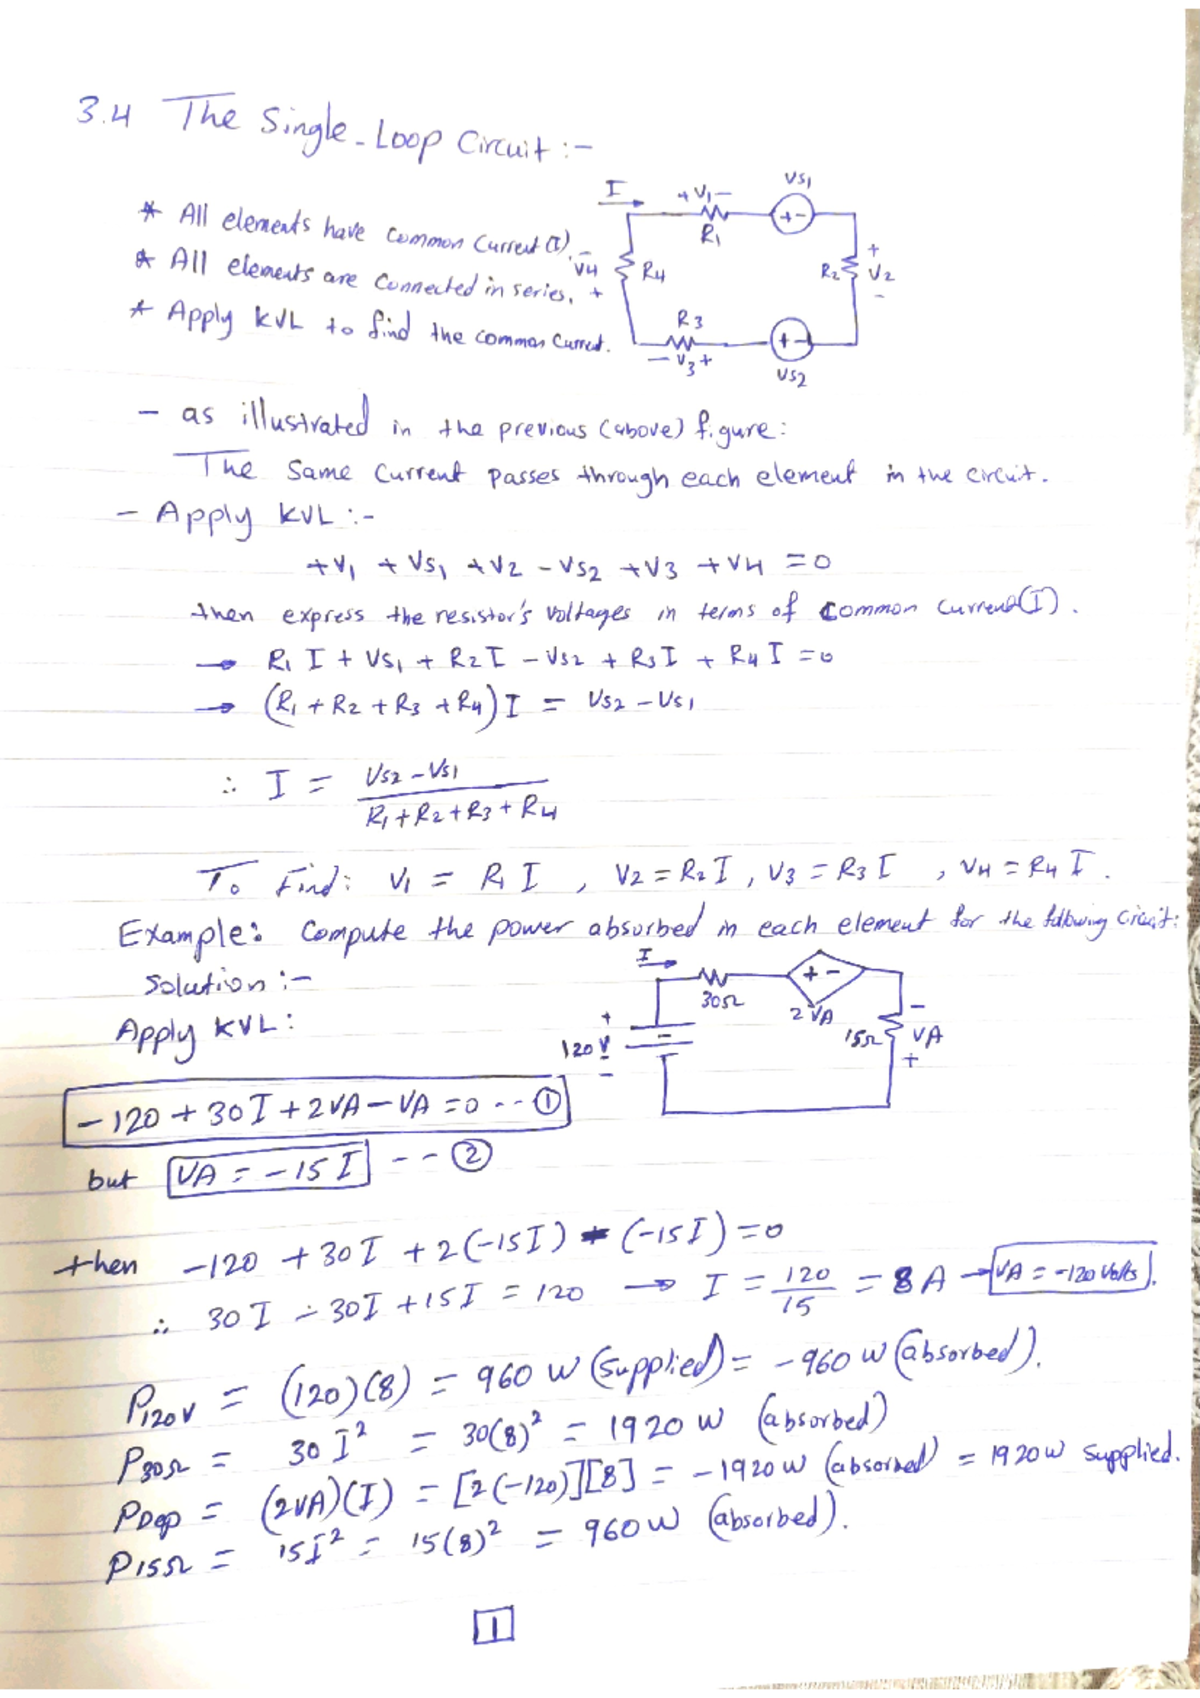 3.4 The Single-Loop Circuit :-
I
+ V1 -
VS1
+ -
R1
* All elements have common current (I).
- V4 +
R4
R2
+ V2 -
* All elements are connected in series.
* Apply KVL to find the common current.
R3
- V3 +
+ -
VS2
- as illustrated in the previous (above) figure:
The same current passes through each element in the circuit.
- Apply KVL :-
+V1 + VS1 + V2 - VS2 + V3 + V4 = 0
then express the resistor's voltages in terms of common current (I).
→ R1 I + VS1 + R2 I - VS2 + R3 I + R4 I = 0
→ (R1 + R2 + R3 + R4) I = VS2 - VS1
∴ I = VS2 - VS1
R1 + R2 + R3 + R4
To Find: V1 = R1 I , V2 = R2 I , V3 = R3 I , V4 = R4 I .
Example: Compute the power absorbed in each element for the following circuit:
Solution :-
I
30Ω
+ -
2 VA
15Ω
- VA +
+ 120 V -
Apply KVL:
-120 + 30I + 2VA - VA = 0 -- ①
but VA = -15 I -- ②
then -120 + 30I + 2(-15I) - (-15I) = 0
∴ 30I - 30I + 15I = 120 → I = 120/15 = 8 A → VA = -120 Volts.
P120V = (120)(8) = 960 W (Supplied) = -960 W (absorbed).
P30Ω = 30 I² = 30(8)² = 1920 W (absorbed)
PDep = (2VA)(I) = [2(-120)][8] = -1920 W (absorbed) = 1920 W supplied.
P15Ω = 15I² = 15(8)² = 960 W (absorbed).
1